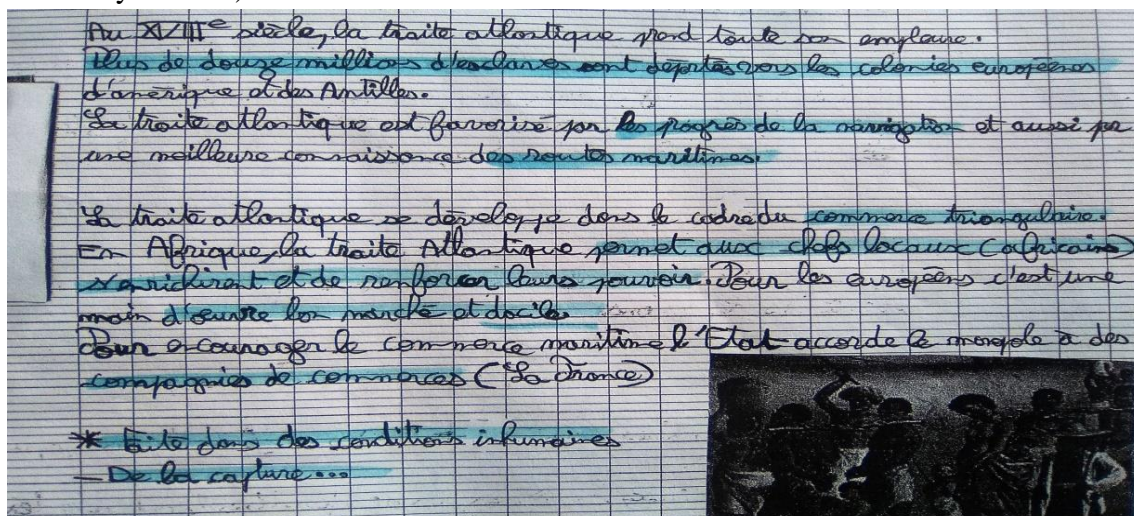 Au XVIIIe siècle, la traite atlantique prend toute son ampleure.
Plus de douze millions d'esclaves sont déportés vers les colonies européenes
d'amérique et des Antilles.
La traite atlantique est favorisé par les progrès de la navigation et aussi par
une meilleure connaissance des routes maritimes.
La traite atlantique se développe dans le cadre du commerce triangulaire.
En Afrique, la traite Atlantique permet aux chefs locaux (africains)
s'enrichirent et de renforcer leurs pouvoir. Pour les européens c'est une
main d'œuvre bon marché et docile.
Pour encourager le commerce maritime l'Etat accorde le monopole à des
compagnies de commerces (La France)
* Faite dans des conditions inhumaines
- De la capture...